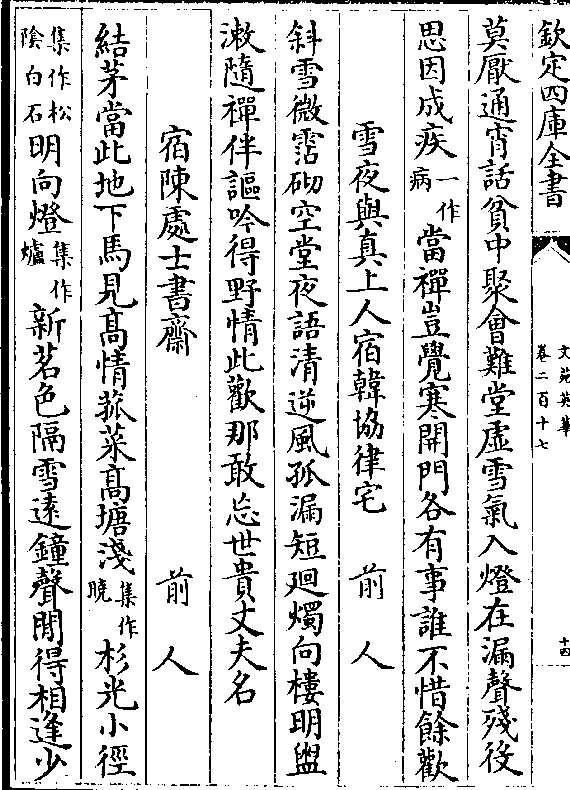 欽定四庫全書
文苑英華
卷二百十七
十四
莫厭通宵話貧中聚會難堂虛雪氣入燈在漏聲殘役
思因成疾一作病當禪豈覺寒開門各有事誰不惜餘歡
雪夜與真上人宿韓協律宅 前人
斜雪微霑砌空堂夜語清逆風孤漏短迴燭向樓明盥
漱隨禪伴謳吟得野情此歡那敢忘世貴丈夫名
宿陳處士書齋 前人
結茅當此地下馬見髙情菰菜髙塘淺集作曉杉光小徑
集作松陰白石明向燈集作爐新茗色隔雪遠鐘聲閒得相逢少